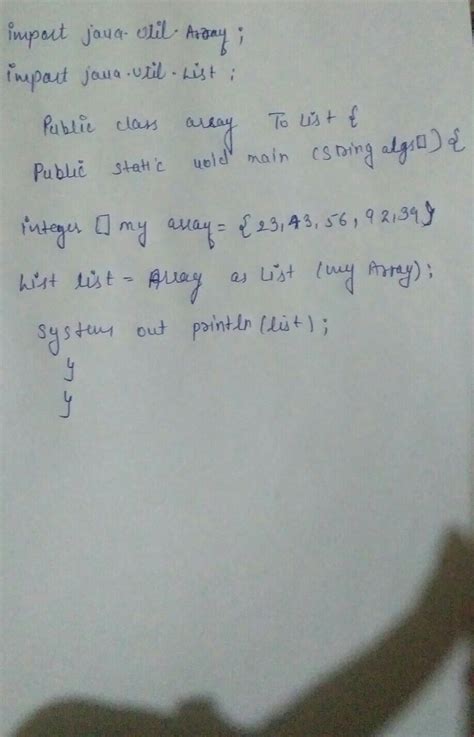 import java.util.Array;
import java.util.List;
Public class array To List {
Public static void main (String algs[]) {
integer [] my array = {23, 43, 56, 92, 39}
List list = Array as List (my Array);
System out println (list);
}
}